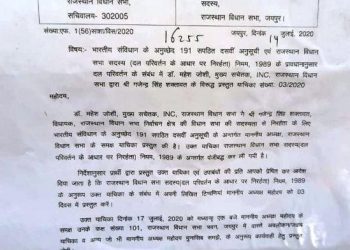 राजस्थान विधान सभा,
सचिवालय- 302005
सदस्य,
राजस्थान विधान सभा, जयपुर।
संख्या.एफ. 1(56)सका/विस/2020
16255
जयपुर, दिनांक 14 जुलाई, 2020
विषय:- भारतीय संविधान के अनुच्छेद 191 सपठित दसवीं अनुसूची एवं राजस्थान विधान
सभा सदस्य (दल परिवर्तन के आधार पर निरर्हता) नियम, 1989 के प्रावधानानुसार
दल परिवर्तन के संबंध में डॉ. महेश जोशी, मुख्य सचेतक, INC, राजस्थान विधान
सभा द्वारा श्री गजेन्द्र सिंह शक्तावत के विरूद्ध प्रस्तुत याचिका संख्या. 03/2020
महोदय,
डॉ. महेश जोशी, मुख्य सचेतक, INC, राजस्थान विधान सभा ने श्री गजेन्द्र सिंह शक्तावत,
विधायक, राजस्थान विधान सभा निर्वाचन क्षेत्र की विधान सभा की सदस्यता से निरर्हता के लिए
भारतीय संविधान के अनुच्छेद 191 सपठित दसवीं अनुसूची के अन्तर्गत माननीय अध्यक्ष, राजस्थान
विधान सभा के समक्ष याचिका प्रस्तुत की है। उक्त याचिका राजस्थान विधान सभा सदस्य(दल
परिवर्तन के आधार पर निरर्हता) नियम, 1989 के अन्तर्गत पंजीबद्ध कर ली गयी है।
निर्देशानुसार प्रार्थी द्वारा प्रस्तुत उक्त याचिका एवं उपाबंधों की प्रति आपको प्रेषित कर आदेश
दिया जाता है कि राजस्थान विधान सभा सदस्य(दल परिवर्तन के आधार पर निरर्हता) नियम, 1989
के अनुसरण उक्त याचिका के संबंध में अपनी लिखित टिप्पणियां माननीय अध्यक्ष महोदय को 03
दिवस में प्रस्तुत करें।
उक्त याचिका दिनांक 17 जुलाई, 2020 को मध्यान्ह एक बजे माननीय अध्यक्ष महोदय के
समक्ष उनके कक्ष संख्या 101, राजस्थान विधान सभा भवन, जयपुर में वास्ते
याचिका में अन्य जो भी माननीय अध्यक्ष महोदय मुनासिब समझें, के अनुरूप कार्यवाही हेतु